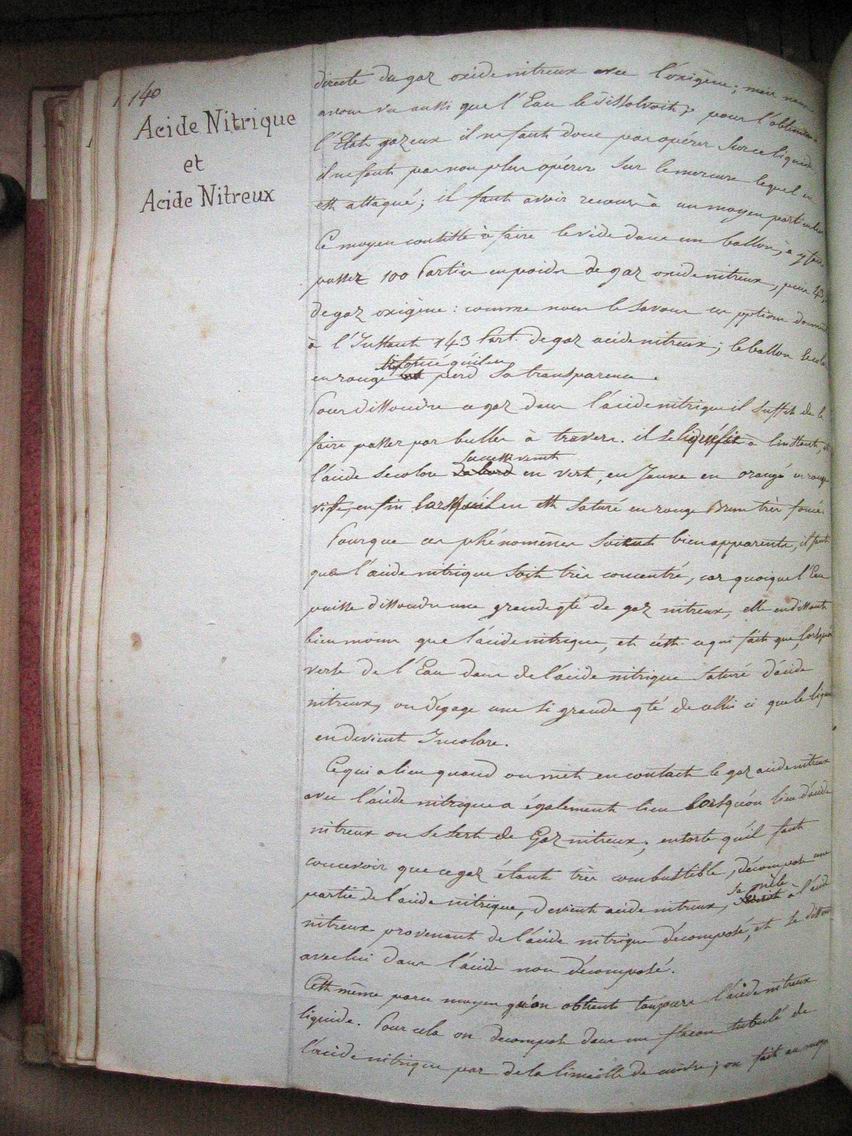 140
Acide Nitrique
et
Acide Nitreux
directe du gaz oxide nitreux avec l'oxigène; mais nous
avons vu aussi que l'Eau le dissolvoit, pour l'obtenir à
l'Etat gazeux il ne faut donc pas opérer sur ce liquide
il ne faut pas non plus opérer sur le mercure lequel en
est attaqué; il faut avoir recours à un moyen particulier
Ce moyen consiste à faire le vide dans un ballon, à y faire
passer 100 Parties en poids de gaz oxide nitreux, puis
de gaz oxigène: comme nous le savons ces portions donnent
à l'Instant 143 Part. de gaz acide nitreux; le ballon se colore
en rouge perd sa transparence.
Pour dissoudre ce gaz dans l'acide nitrique il suffit de le
faire passer par bulles à travers. il se liquéfie à l'instant, et
l'acide se colore successivement en vert, en Jaune en orangé en rouge
vif, enfin lorsqu'il en est saturé en rouge Brun très foncé.
Pourque ces phénomènes soient bien apparents, il faut
que l'acide nitrique soit très concentré, car quoique l'Eau
puisse dissoudre une grande qté de gaz nitreux, elle en dissout
bien moins que l'acide nitrique, et c'est ce qui fait que, lorsqu'on
verse de l'Eau dans de l'acide nitrique saturé d'acide
nitreux, on dégage une si grande qté de celui ci que le liquide
en devient Incolore.
Ce qui a lieu quand on met en contact le gaz acide nitreux
avec l'acide nitrique a également lieu lorsqu'au lieu d'acide
nitreux on se sert de Gaz nitreux; ensorte qu'il faut
concevoir que ce gaz étant très combustible, décompose une
partie de l'acide nitrique, devient acide nitreux, se mêle à l'acide
nitreux provenant de l'acide nitrique décomposé, et se dissout
avec lui dans l'acide non décomposé.
C'est même par ce moyen qu'on obtient toujours l'acide nitreux
liquide. Pour cela on décompose dans un flacon tubulé de
l'acide nitrique par de la limaille de cuivre; on fait au moyen